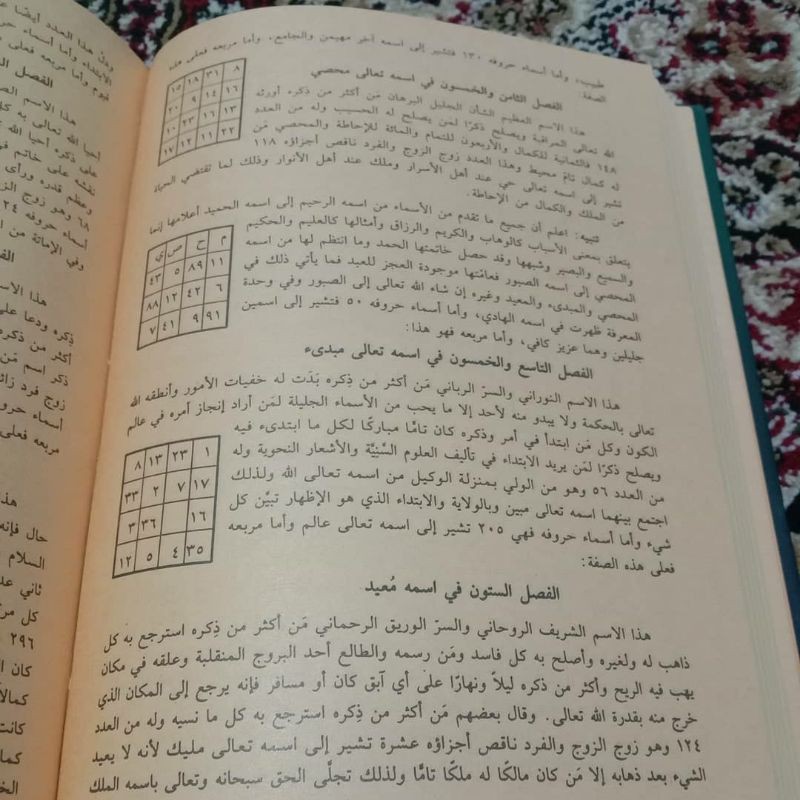 طبيب، وأما أسماء حروفه ١٣٠ فتشير إلى اسمه آخر مهيمن والجامع، وأما مربعه فعلى هذه
الصفة:
٨ ٣١ ١٨ ١٥
١٦ ١٤ ٩ ٢٠
١٣ ١٦ ٢٣ ١٠
٢٢ ١١ ١٢ ١٧
الفصل الثامن والخمسون في اسمه تعالى محصي
هذا الاسم العظيم الشأن الجليل البرهان مَن أكثر من ذكره أورثه
الله تعالى المراقبة ويصلح ذكرًا لمَن يصلح له الحسيب وله من العدد
١٤٨ فالثمانية للكمال والأربعون للتمام والمائة للإحاطة والمحصي مَن
له كمال تامّ محيط وهذا العدد زوج الزوج والفرد ناقص أجزاؤه ١١٨
تشير إلى اسمه تعالى حي عند أهل الأسرار وملك عند أهل الأنوار وذلك لما تقتضي الحياة
من الملك والكمال من الإحاطة.
تنبيه: اعلم أن جميع ما تقدم من الأسماء من اسمه الرحيم إلى اسمه الحميد أعلامها إنما
يتعلق بمعنى الأسباب كالوهاب والكريم والرزاق وأمثالها كالعليم والحكيم
والسميع والبصير وشبهها وقد حصل خاتمتها الحمد وما انتظم لها من اسمه
المحصي إلى اسمه الصبور فعامّتها موجودة العجز للعبد فما يأتي ذلك في
المحصي والمبدىء والمعيد وغيره إن شاء الله تعالى إلى الصبور وفي وحدة
المعرفة ظهرت في اسمه الهادي، وأما أسماء حروفه ٥٠ فتشير إلى اسمين
جليلين وهما عزيز كافي، وأما مربعه فهو هذا:
م ح ص ي
١١ ٨٩ ٥ ٤٣
٦ ٤٢ ١٢ ٨٨
٩١ ٩ ٤١ ٧
الفصل التاسع والخمسون في اسمه تعالى مبدىء
هذا الاسم النوراني والسرّ الرباني مَن أكثر من ذِكره بَدَت له خفيات الأمور وأنطقه الله
تعالى بالحكمة ولا يبدو منه لأحد إلا ما يحب من الأسماء الجليلة لمَن أراد إنجاز أمره في عالم
الكون وكل مَن ابتدأ في أمر وذكره كان تامًّا مباركًا لكل ما ابتدىء فيه
ويصلح ذكرًا لمَن يريد الابتداء في تأليف العلوم السَّنِيَّة والأشعار النحوية وله
من العدد ٥٦ وهو من الولي بمنزلة الوكيل من اسمه تعالى الله ولذلك
اجتمع بينهما اسمه تعالى مبين وبالولاية والابتداء الذي هو الإظهار تبيّن كل
شيء وأما أسماء حروفه فهي ٢٠٥ تشير إلى اسمه تعالى عالم وأما مربعه
فعلى هذه الصفة:
١ ٢٣ ١٣ ٨
١٧ ٧ ٢ ٣٣
١٦ ٣٦ ٣
٣٥ ٤ ٥ ١٢
الفصل الستون في اسمه مُعيد
هذا الاسم الشريف الروحاني والسرّ الوريق الرحماني مَن أكثر من ذِكره استرجع به كل
ذاهب له ولغيره وأصلح به كل فاسد ومَن رسمه والطالع أحد البروج المنقلبة وعلقه في مكان
يهب فيه الريح وأكثر من ذكره ليلاً ونهارًا علىَ أي آبق كان أو مسافر فإنه يرجع إلى المكان الذي
خرج منه بقدرة الله تعالى. وقال بعضهم مَن أكثر من ذكره استرجع به كل ما نسيه وله من العدد
١٢٤ وهو زوج الزوج والفرد ناقص أجزاؤه عشرة تشير إلى اسمه تعالى مليك لأنه لا يعيد
الشيء بعد ذهابه إلا مَن كان مالكًا له ملكًا تامًّا ولذلك تجلَّى الحق سبحانه وتعالى باسمه الملك